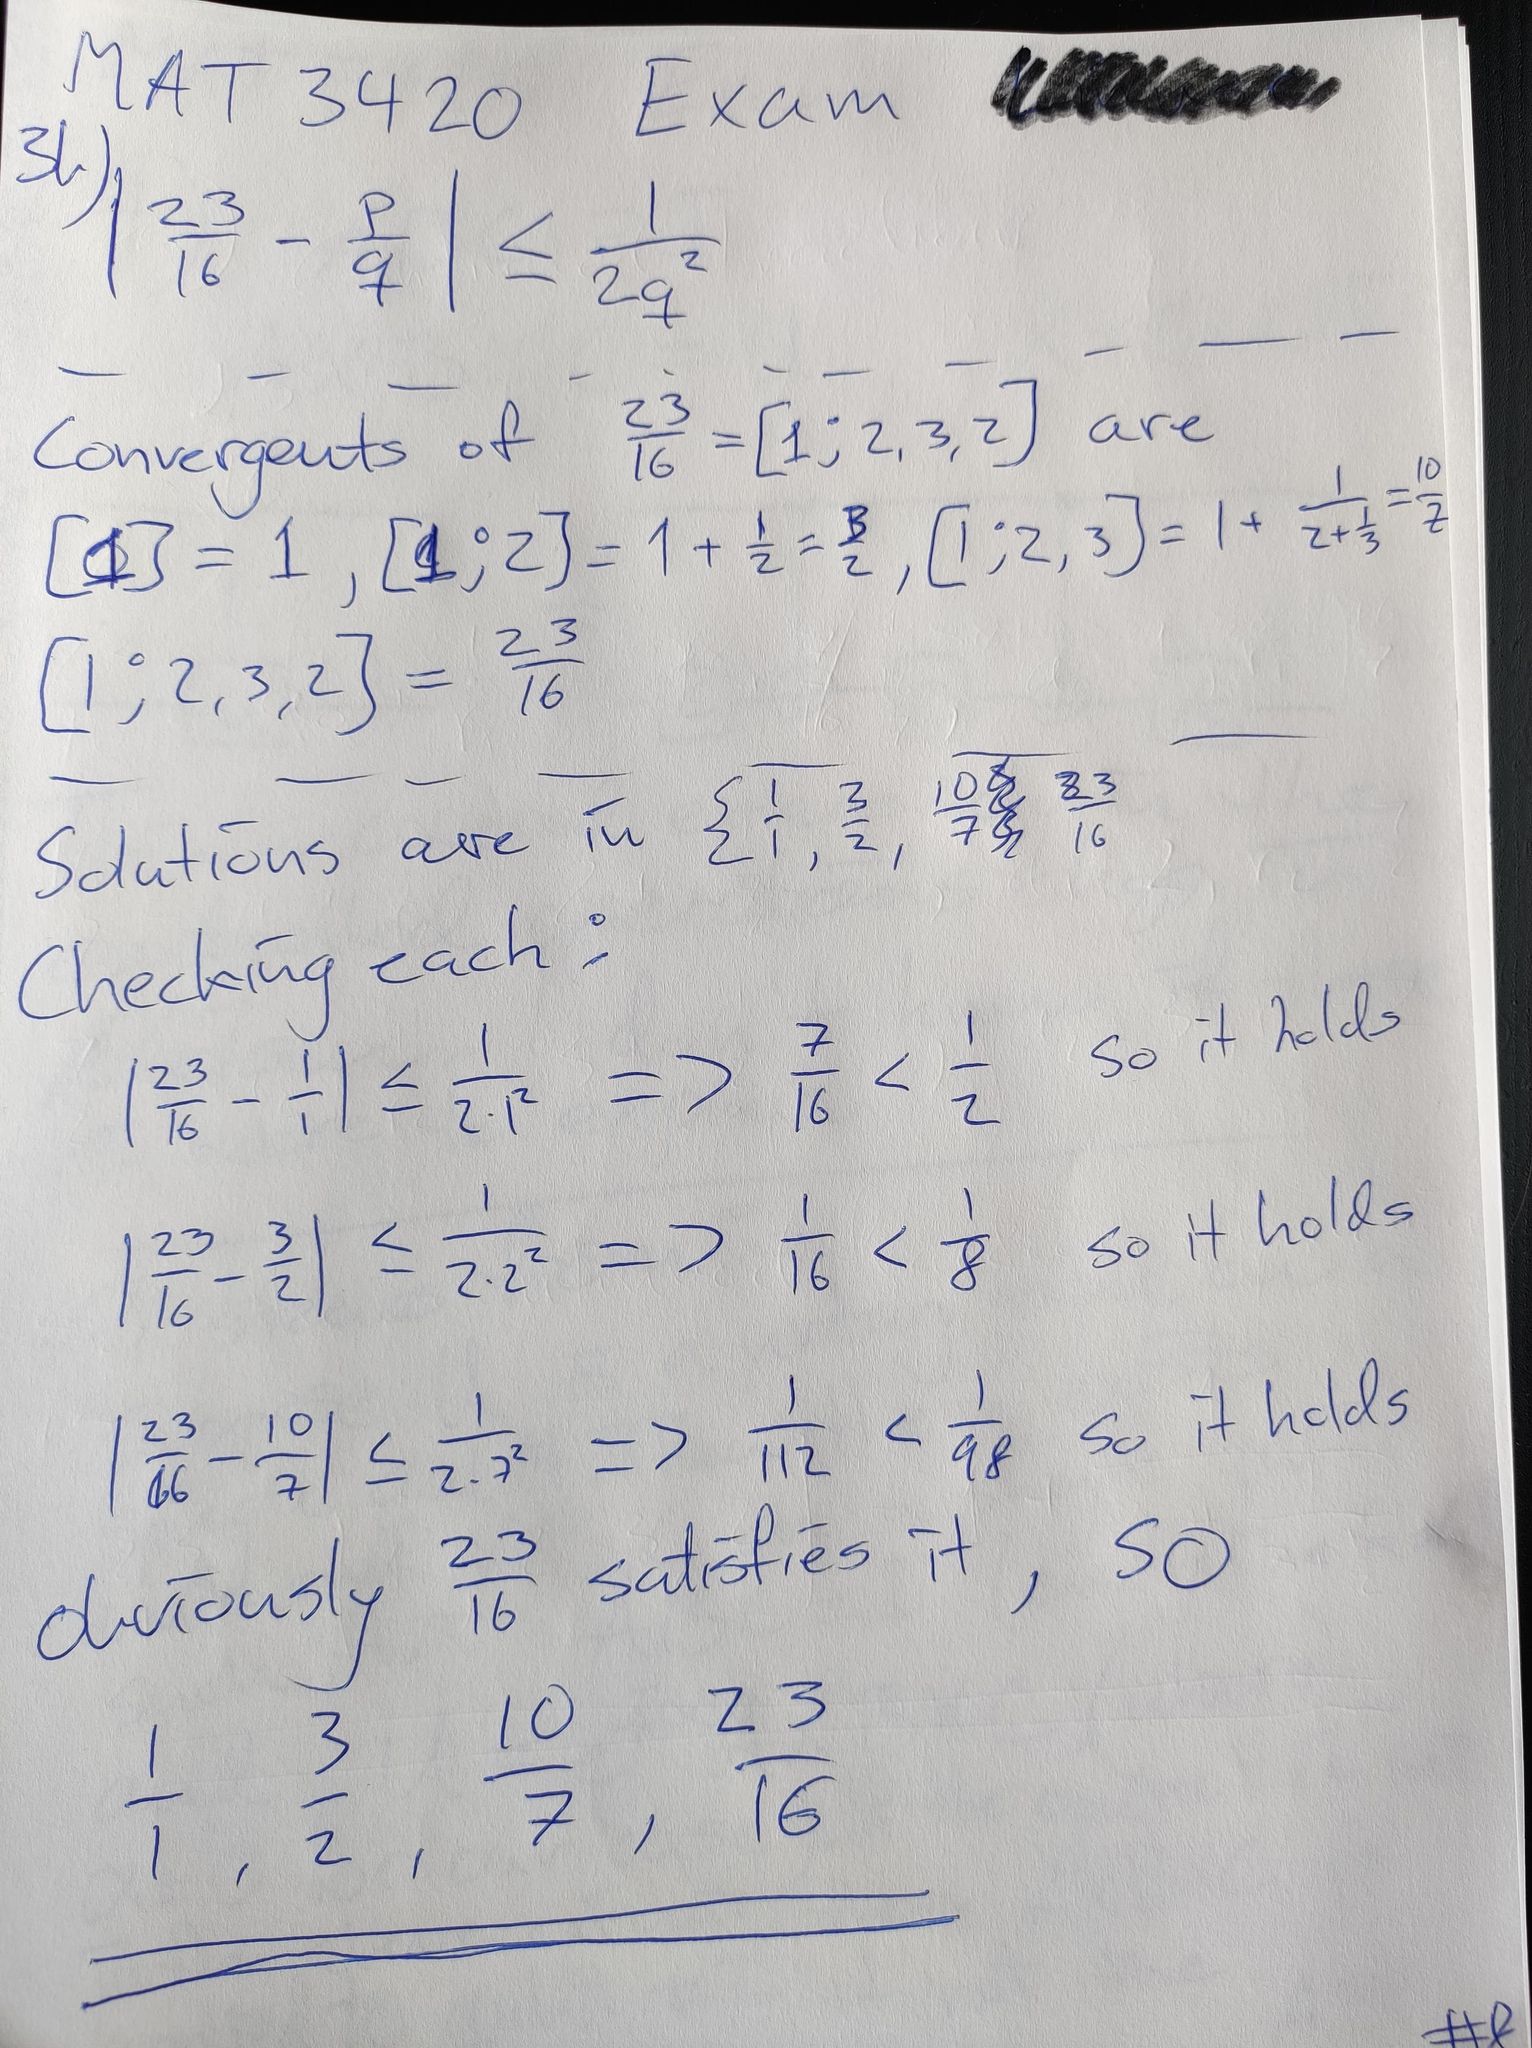 MAT 3420 Exam
3b)
|23/16 - p/q| ≤ 1/2q²
Convergents of 23/16 = [1;2,3,2] are
[1] = 1, [1;2] = 1 + 1/2 = 3/2, [1;2,3] = 1 + 1/(2+1/3) = 10/7
[1;2,3,2] = 23/16
Solutions are in {1/1, 3/2, 10/7 23/16
Checking each:
|23/16 - 1/1| ≤ 1/2·1² => 7/16 < 1/2 so it holds
|23/16 - 3/2| ≤ 1/2·2² => 1/16 < 1/8 so it holds
|23/16 - 10/7| ≤ 1/2·7² => 1/112 < 1/98 so it holds
obviously 23/16 satisfies it, so
1/1, 3/2, 10/7, 23/16